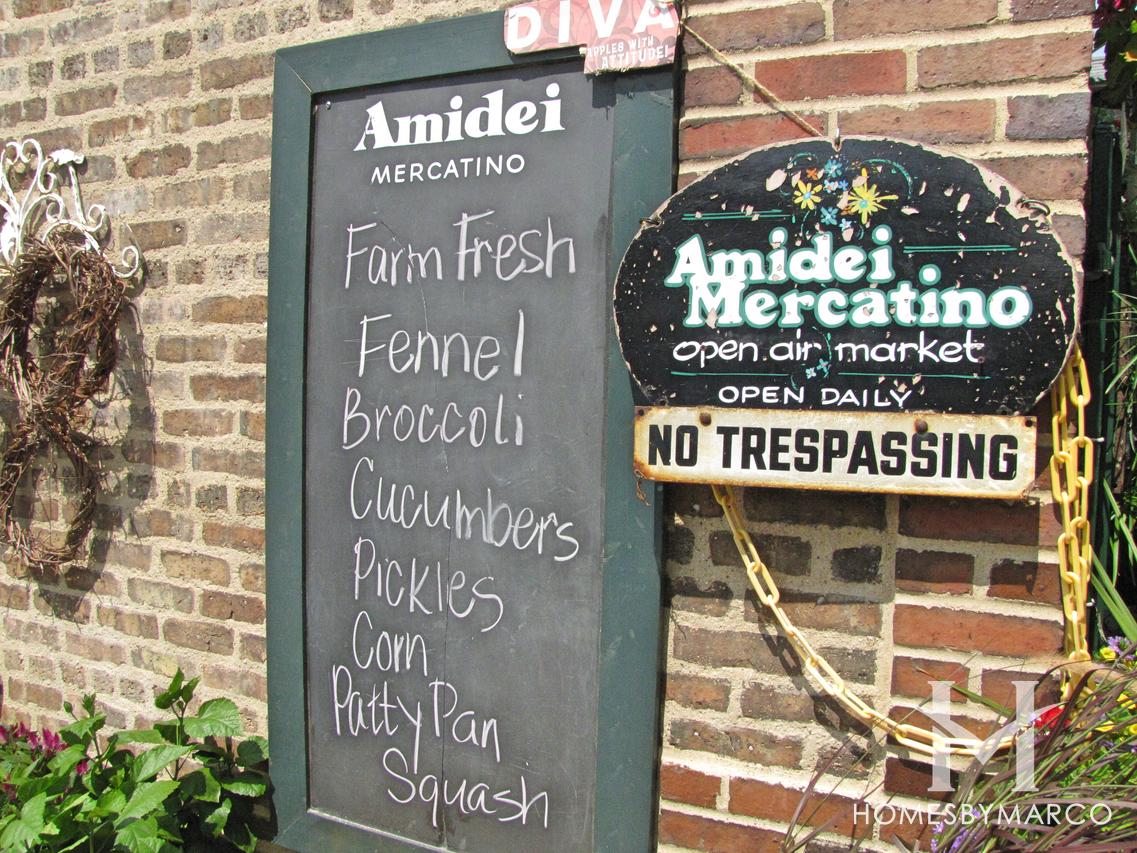 DIVA
APPLES WITH
ATTITUDE!
Amidei
MERCATINO
Farm Fresh
Fennel
Broccoli
Cucumbers
Pickles
Corn
Patty Pan
Squash
Amidei
Mercatino
open air market
OPEN DAILY
NO TRESPASSING
H
HOMESBYMARCO